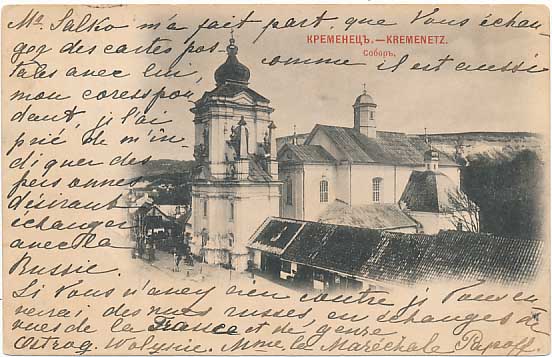 Mr Salko m'a fait part, que Vous échan
gez des cartes pos
КРЕМЕНЕЦЪ.—KREMENETZ.
Соборъ.
tales avec lui,
comme il est aussi
mon corespon
dant, j'l'ai
prié de m'in
diquer des
personnes
désirant
échanger
avec la
Russie.
Si Vous n'avez rien contre, j Vous en
verai des vues russes, en échanges de
vues de la France et de genre
Ostrog. Wolynie. Mme la Maréchale Papoff.